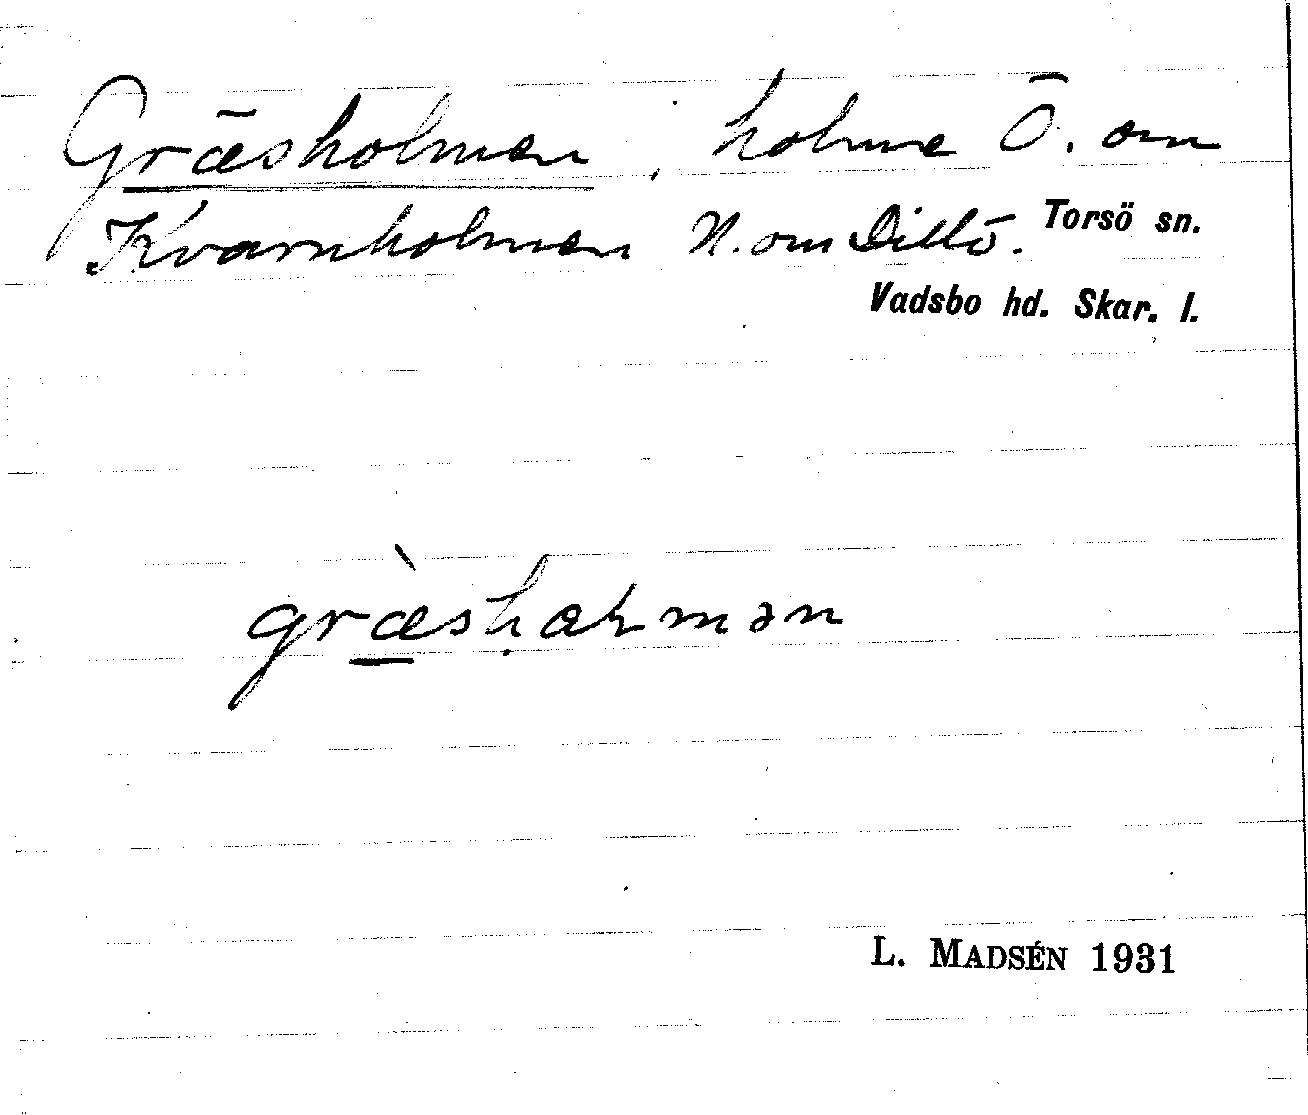 Gräsholmen, holme Ö. om
Kvarnholmen N. om Dillö. Torsö sn.
Vadsbo hd. Skar. l.
L. MADSÉN 1931